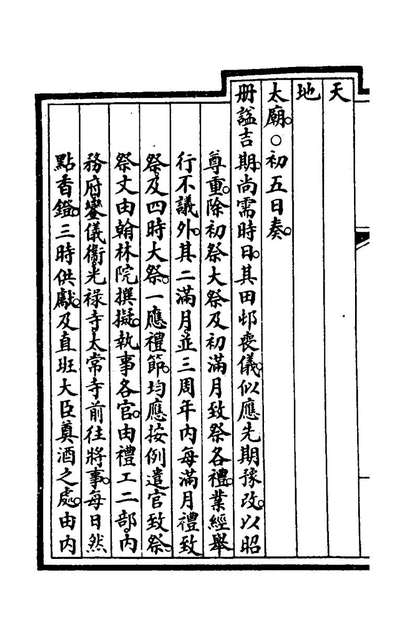 天
地
太廟。○初五日奏。
冊諡吉期。尚需時日。其田邨喪儀。似應先期豫改。以昭
尊重。除初祭大祭及初滿月致祭各禮。業經舉
行不議外。其二滿月。並三周年內每滿月禮致
祭及四時大祭。一應禮節。均應按例遣官致祭。
祭文由翰林院撰擬。執事各官。由禮工二部。內
務府鑾儀衞。光祿寺。太常寺前往將事。每日然
點香鐙。三時供獻。及直班大臣奠酒之處。由內